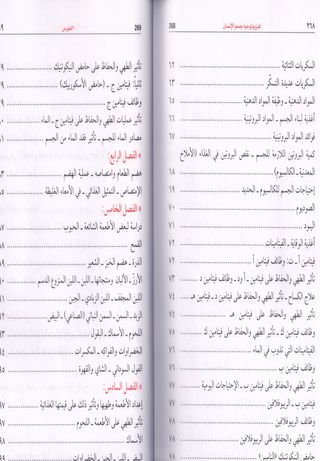 ٢٦٨ فيزيولوجيا جسم الإنسان 268
السكريات الثنائية ٦٢
السكريات عديدة التسكر ٦٣
المواد الدهنية ـ وظيفة المواد الدهنية ٦٥
أغذية لبناء الجسم ـ المواد البروتينية ٦٦
فوائد المواد البروتينية ٦٧
كمية البروتين اللازمة للجسم ـ نقص البروتين في الغذاء (الأملاح
المعدنية ـ الكالسيوم) ٦٨
إحتياجات الجسم للكالسيوم ـ الحديد ٦٩
الصوديوم ٧٠
اليود ٧١
أغذية الوقاية ـ الفيتامينات ٧٢
فيتامين أ ـ ت: وظائف فيتامين أ ٧٢
تأثير الطهي والحفاظ على فيتامين ـ أ ـ وظائف فيتامين د ٧٣
علاج الكساح ـ تأثير الطهي والحفاظ على فيتامين د ـ فيتامين هـ ٧٤
تأثير الطهي والحفاظ على فيتامين هـ ٧٤
فيتامين ك ـ تأثير الطهي والحفاظ على فيتامين ك ٧٥
الفيتامينات التي تذوب في الماء ٧٦
وظائف فيتامين ب ٧٦
تأثير الطهي والحفاظ على فيتامين ب ـ الإحتياجات اليومية ٧٧
فيتامين ب ـ الريبوفلافين ٧٧
وظائف الريبوفلافين ٧٨
تأثير الطهي والحفاظ على الريبوفلافين ٧٨
حامض النيكوتنيك ٧٨
269 الفهرس
تأثير الطهي والحفاظ على حامض النيكوتنيك
ثانياً: فيتامين ج ـ (حامض الأسكوربيك)
وظائف فيتامين ج
تأثير عمليات الطهي والحفاظ على فيتامين ج ـ الماء
مصادر الماء للجسم ـ تأثير فقد الماء من الجسم
* الفصل الرابع:
هضم الطعام وامتصاصه ـ عملية الهضم
الإمتصاص ـ التمثيل الغذائي ـ في الأمعاء الغليظة
* الفصل الخامس:
دراسة لبعض الأطعمة الشائعة ـ الحبوب
القمح
الذرة ـ هضم الخبز ـ الشعير
الأرز ـ الألبان ومنتجاتها ـ اللبن ـ اللبن المنزوع الدسم
اللبن المجفف ـ اللبن الزبادي ـ الجبن
الزبد ـ السمن ـ السمن النباتي (الصناعي) ـ البيض
اللحوم ـ الأسماك ـ البقول
الخضراوات والفواكه ـ المكسرات
الفول السوداني ـ الشاي والقهوة
* الفصل السادس:
إعداد الأطعمة وطهيها وتأثير ذلك على قيمتها الغذائية
تأثير الطهي على الأطعمة ـ اللحوم
الأسماك
البيض ـ اللبن ـ الجبن ـ الخضراوات